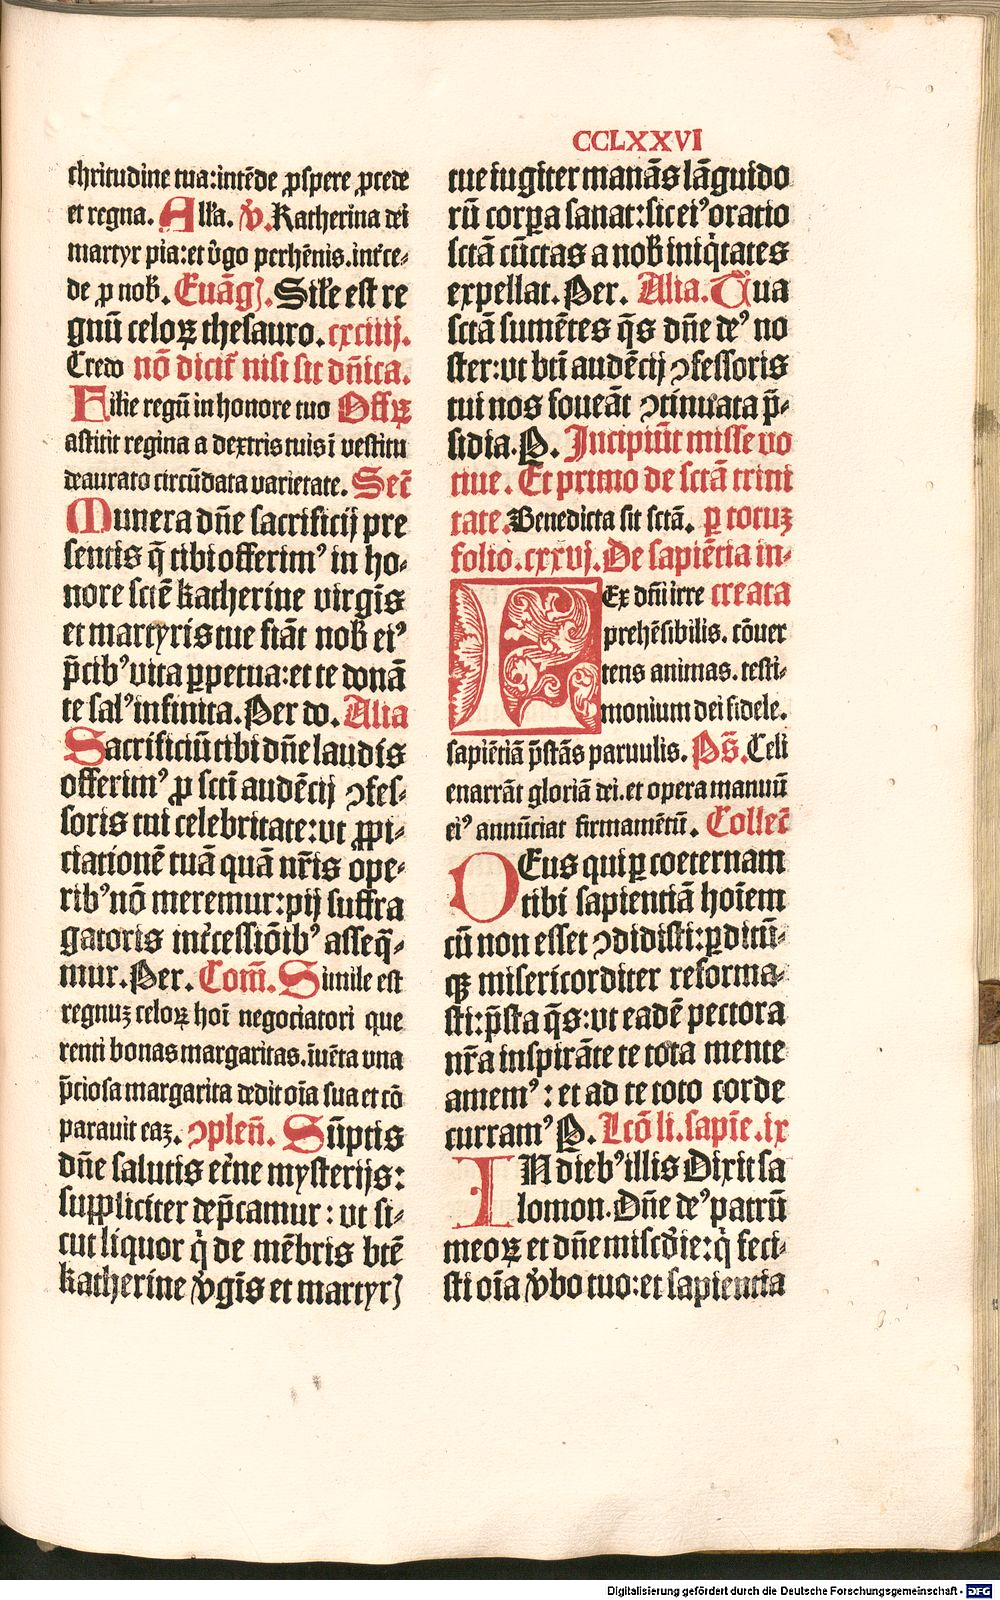 CCLXXVI
chritudine tua:intēde ꝓspere ꝓcede
et regna. Alľa. ꝟ. Katherina dei
martyr pia:et ꝟgo perhēnis.int̄ce⸗
de ꝓ nob̄. Euāgꝭ. Sil̄e est re
gnū celoꝝ thesauro. cxciiij.
Credo nō dicit̄ nisi sit dn̄ica.
Filie regū in honore tuo Offꝝ
astitit regina a dextris tuis ī vestitu
deaurato circūdata varietate. Secꝉ
Munera dn̄e sacrificij pre
sentis q̄ tibi offerimꝰ in ho⸗
nore scte̅ katherine virgīs
et martyris tue fiāt nob̄ eiꝰ
p̄cibꝰ vita ꝑpetua:et te donā
te salꝰ infinita. Per do. Alia
Sacrificiū tibi dn̄e laudis
offerimꝰ ꝓ scti audēcij ꝯfes⸗
soris tui celebritate:vt ꝓpi⸗
ciationē tuā quā nr̄is ope⸗
ribꝰ nō meremur:pij suffra
gatoris int̄cessiōibꝰ asseq̄⸗
mur. Per. Com̄. Simile est
regnuꝫ celoꝝ hoī negociatori que
renti bonas margaritas.īuēta vna
p̄ciosa margarita dedit oīa sua et cō
parauit eaꝫ. ꝯplen̄. Sūptis
dn̄e salutis et̄ne mysterijs:
suppliciter dep̄camur: vt si⸗
cut liquor q̇ de mēbris btē
katherine ꝟgīs et martyrꝭ
tue iugiter manās lāguido
rū corꝑa sanat:sic eiꝰ oratio
sctā cūctas a nob̄ iniq̇tates
expellat. Per. Alia. Tua
sctā sumētes q̄s dn̄e deꝰ no
ster:vt bti audēcij ꝯfessoris
tui nos foueāt ꝯtinuata p̄⸗
sidia. P. Incipiūt misse vo
tiue. Et primo de sctā trini
tate. Benedicta sit sctā. ꝑ totuꝫ
folio.cxxvj. De sapiētia in⸗
LEx dn̄i irre creata
prehēsibilis. cōuer
tens animas. testi⸗
monium dei fidele.
sapiētiā p̄stās paruulis. Ps̄. Celi
enarrāt gloriā dei. et opera manuū
eiꝰ annūciat firmamētū. Collecꝉ
DEus qui ꝑ coeternam
tibi sapientiā hoīem
cū non esset ꝯdidisti:ꝑditū⸗
qꝫ misericorditer reforma⸗
sti:p̄sta q̄s:vt eadē pectora
nr̄a inspirāte te tota mente
amemꝰ: et ad te toto corde
curramꝰ P. Lcō li.sapiē.ix
IN diebꝰ illis Dixit sa
lomon. Dn̄e deꝰ patrū
meoꝝ et dn̄e misc̄die:q̇ feci⸗
sti oīa ꝟbo tuo:et sapientia
Digitalisierung gefördert durch die Deutsche Forschungsgemeinschaft - DFG